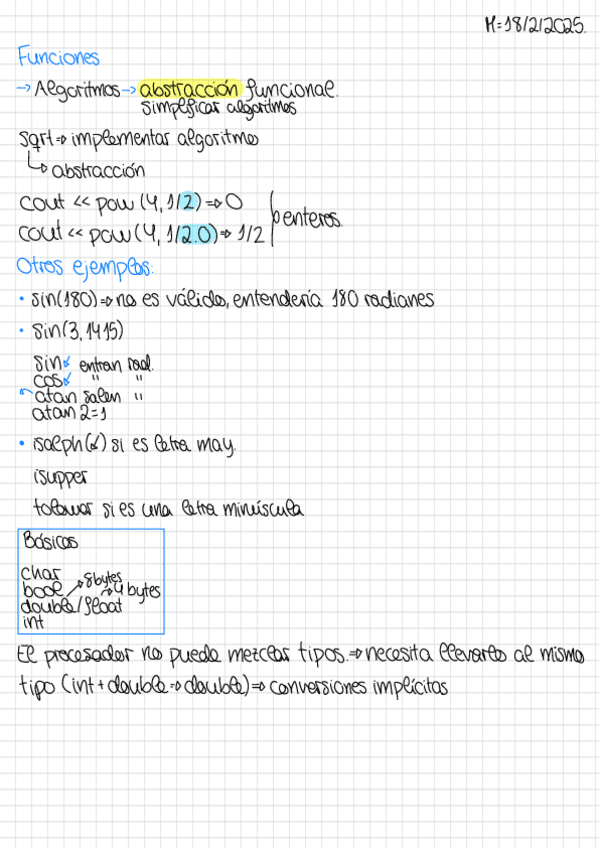 M=18/2/2025.
Funciones
→ Algoritmos → abstracción funcional.
simplificar algoritmos
sqrt ⇒ implementar algoritmo
↳ abstracción
cout << pow (4, 1/2) ⇒ 0
cout << pow (4, 1/2.0) ⇒ 1/2
enteros
Otros ejemplos:
• sin(180) ⇒ no es válido, entendería 180 radianes
• sin(3,1415)
sin entran rad.
cos " "
atan salen "
atan 2=1
• isalph( ) si es letra may.
isupper
tolower si es una letra minúscula
Básicos
char
bool
8bytes
4 bytes
double/float
int
El procesador no puede mezclar tipos. ⇒ necesita llevarlo al mismo
tipo (int + double ⇒ double) ⇒ conversiones implícitas